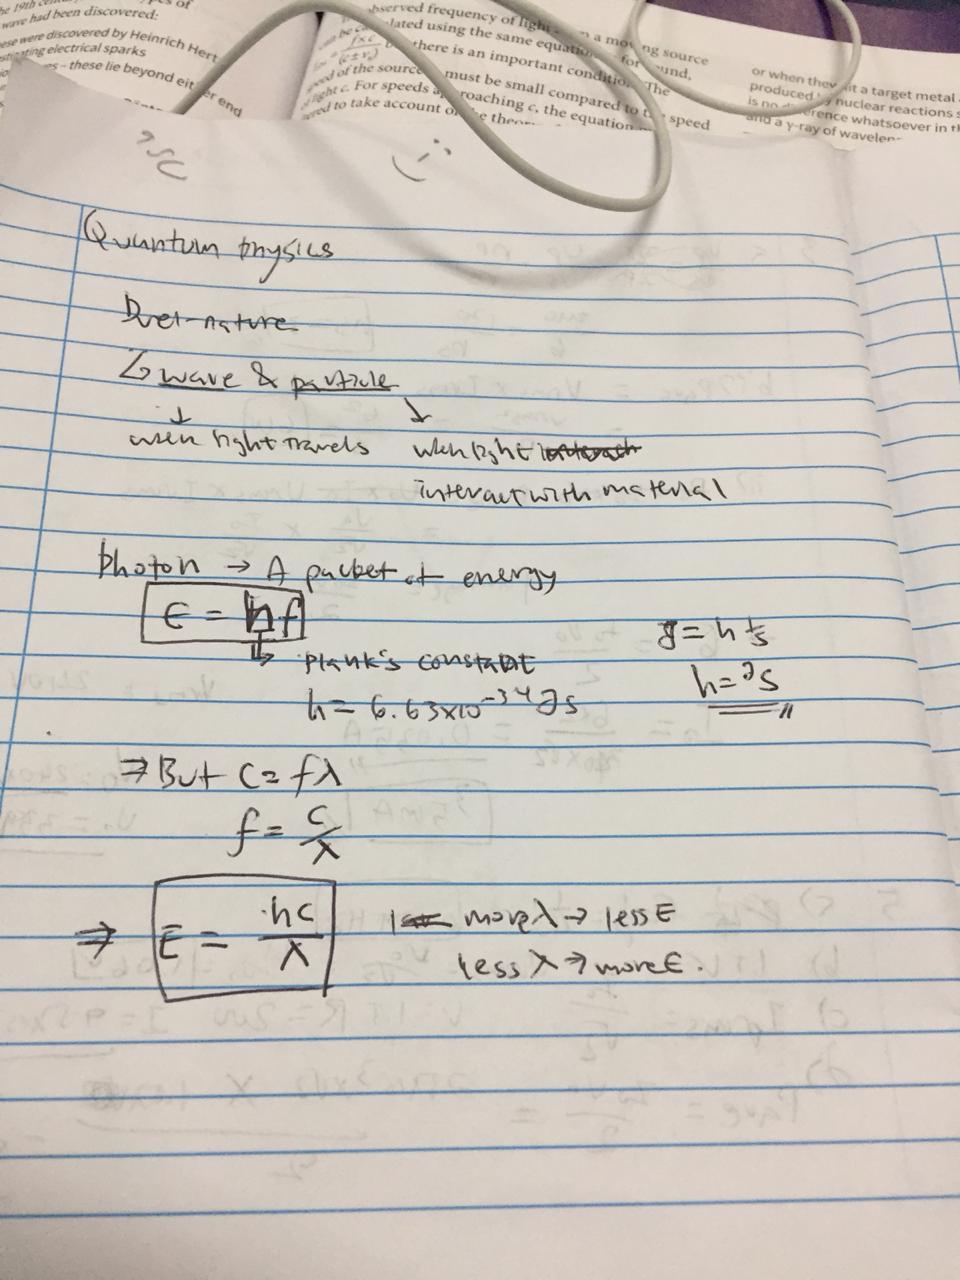 he 19th
pes of
wave had been discovered:
ese were discovered by Heinrich Hert
ting electrical sparks
– these lie beyond eit er end
bserved frequency of light
n a mov ng source
lated using the same equation for
und,
f×c
(c±v
there is an important condition. The
of the source must be small compared to t speed
of light c. For speeds a roaching c, the equation
red to take account o e theor
or when they it a target metal
produced y nuclear reactions
is no erence whatsoever in th
and a γ-ray of wavelen
Quantum physics
Duel-nature
↳ wave & particle
↓ ↓
when light travels when light interach
interact with material
photon → A packet of energy
E = hf
↳ plank's constant
h = 6.63×10⁻³⁴ Js
J = h 1/s
h = Js
⇒ But c = fλ
f = c/λ
⇒ E = hc/λ
more λ → less E
less λ → more E.